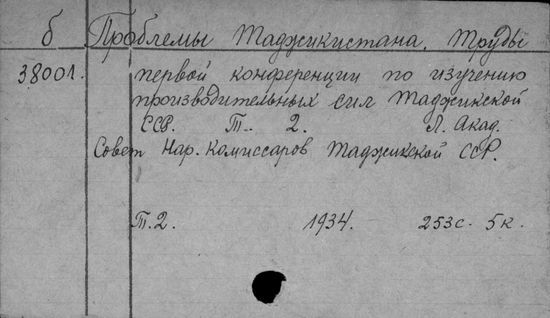 б Проблемы Таджикистана. Труды
38001. первой конференции по изучению
производительных сил Таджикской
ССР. Т. 2. Л. Акад.
Совет Нар. Комиссаров Таджикской ССР.
Т. 2. 1934. 253 с. 5 к.